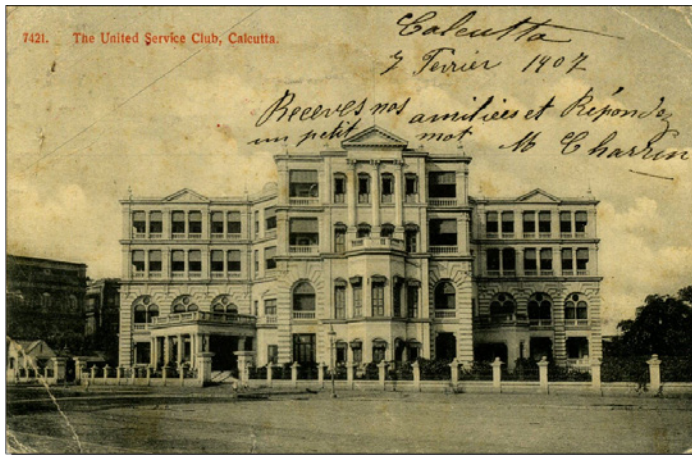 7421. The United Service Club, Calcutta.
Calcutta
7 Ferrier 1907
Receves nos amitiées et Répondez
un petit mot M Charrin